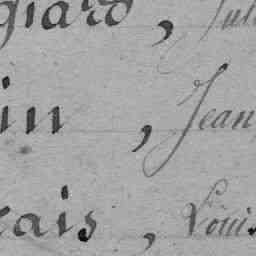 giard, Jul
in, Jean
cais, Louis